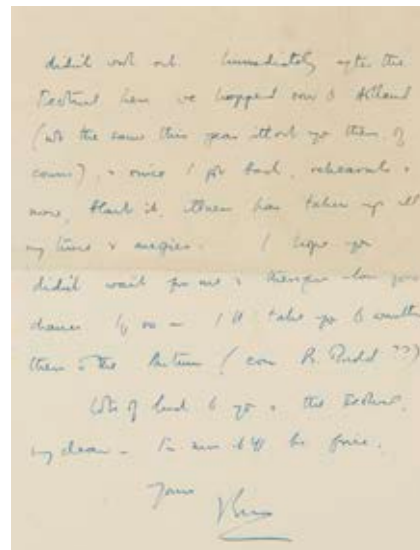 didn't work out. Immediately after the
Festival here we hopped over to
(not the same this year without you there, of
course), & once I got back, rehearsals &
more, blast it, illness has taken up all
my time & energies. I hope you
didn't wait for me & therefore lose your
chance. If so — I'll take you to
there in the Autumn (con ??)
Lots of luck to you & the Festival,
my dears — I'm sure it'll be fine.
Yours